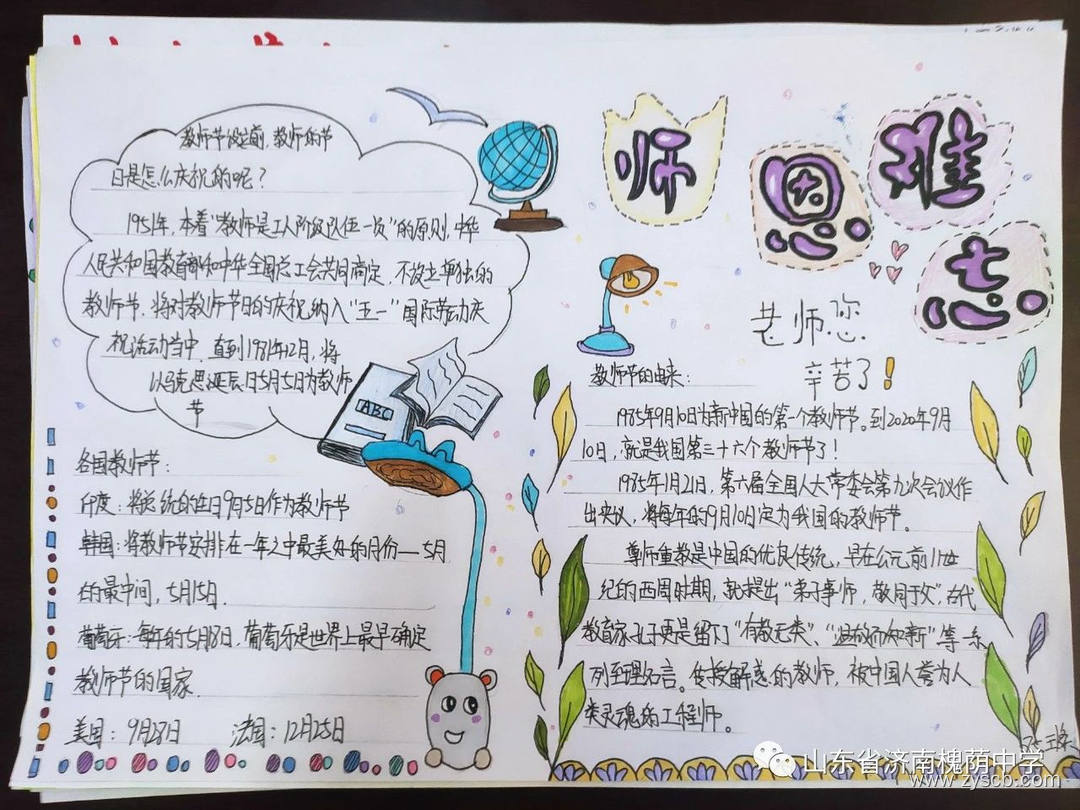 师恩难忘
老师您
辛苦了！
教师节设立前，教师的节
日是怎么庆祝的呢？
1951年，本着"教师是工人阶级队伍一员"的原则，中华
人民共和国教育部和中华全国总工会共同商定，不设立单独的
教师节，将对教师节日的庆祝纳入"五一"国际劳动庆
祝活动当中，直到1981年12月，将
以马克思诞辰日5月5日为教师
节
ABC
各国教师节：
印度：将总统的生日9月5日作为教师节
韩国：将教师节安排在一年之中最美好的月份—5月
的最中间，5月15日.
葡萄牙：每年的5月18日，葡萄牙是世界上最早确定
教师节的国家.
美国：9月28日 法国：12月25日
教师节的由来：
1985年9月10日为新中国的第一个教师节。到2020年9月
10日，就是我国第三十六个教师节了！
1985年1月21日，第六届全国人大常委会第九次会议作
出决议，将每年的9月10日定为我国的教师节。
尊师重教是中国的优良传统，早在公元前11世
纪的西周时期，就提出"弟子事师，敬同于父"，古代
教育家孔子更是留下了"有教无类"、"温故而知新"等一系
列至理名言。传授解惑的教师，被中国人誉为人
类灵魂的工程师。
山东省济南槐荫中学
www.zyscb.com